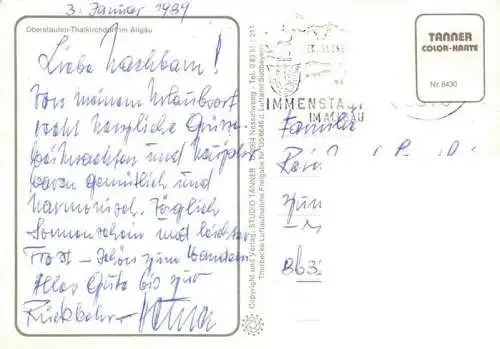 3. Januar 1989
Oberstaufen-Thalkirchdorf im Allgäu
Liebe Nachbarn!
Von meinem Urlaubsort
recht herzliche Grüsse.
Weihnachten und Neujahr
waren gemütlich und
harmonisch. Täglich
Sonnenschein und leichter
Frost - schön zum Wandern.
Alles Gute bis zur
Rückkehr -
Copyright und Verlag: STUDIO TANNER Nesselwang - Tel.
Thorbecke Luftaufnahme Freigabe Luftamt Südbayern
IMMENSTADT
IM ALLGÄU
TANNER
COLOR-KARTE
Nr. 6430
Familie
zum